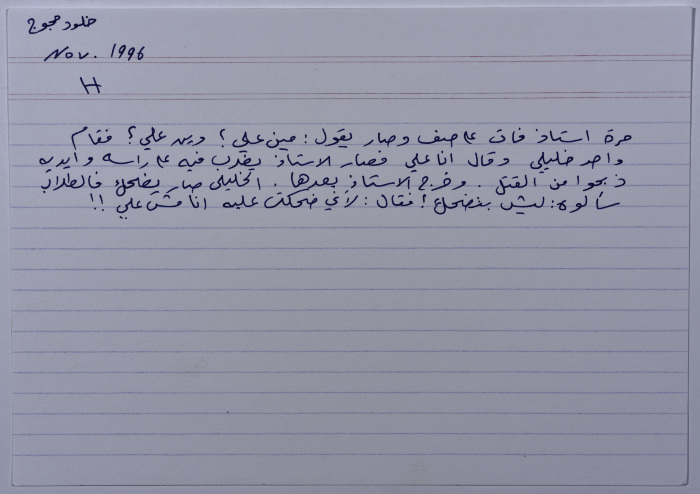 خلود حجوج
Nov. 1996
H
مرة استاذ فات ع صف وصار يقول: مين علي؟ وين علي؟ فقام
واحد خليلي وقال انا علي فصار الاستاذ يضرب فيه ع راسه وايديه
ذبحوا من القتل. وخرج الاستاذ بعدها. الخليلي صار يضحك فالطلاب
سألوه: ليش بتضحك؟ فقال: لأني ضحكت عليه انا مش علي!!